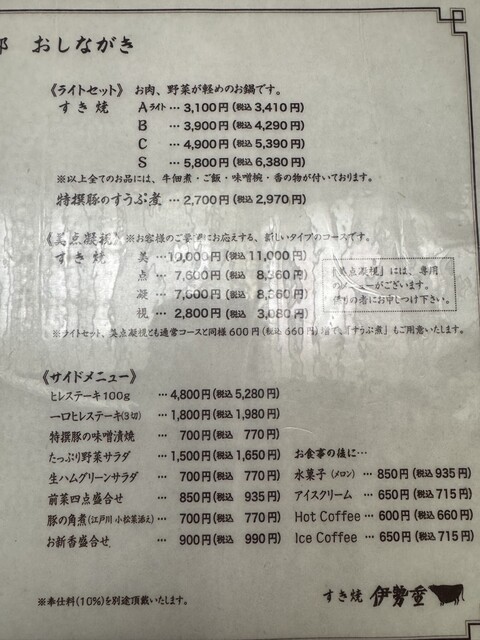 おしながき
《ライトセット》 お肉、野菜が軽めのお鍋です。
すき焼 Aライト … 3,100円(税込3,410円)
B … 3,900円(税込4,290円)
C … 4,900円(税込5,390円)
S … 5,800円(税込6,380円)
※以上全てのお品には、牛佃煮・ご飯・味噌椀・香の物が付いております。
特撰豚のすうぷ煮 … 2,700円(税込2,970円)
《美点凝視》 ※お客様のご要望にお応えする、新しいタイプのコースです。
すき焼 美 … 10,000円(税込11,000円)
点 … 7,600円(税込 8,360円)
凝 … 7,600円(税込 8,360円)
視 … 2,800円(税込 3,080円)
「美点凝視」には、専用
のメニューがございます。
係りの者にお申しつけ下さい。
※ライトセット、美点凝視とも通常コースと同様600円(税込660円)増で「すうぷ煮」もご用意いたします。
《サイドメニュー》
ヒレステーキ100g … 4,800円(税込5,280円)
一口ヒレステーキ(3切) … 1,800円(税込1,980円)
特撰豚の味噌漬焼 … 700円(税込 770円)
たっぷり野菜サラダ … 1,500円(税込1,650円)
生ハムグリーンサラダ … 700円(税込 770円)
前菜四点盛合せ … 850円(税込 935円)
豚の角煮(江戸川 小松菜添え) … 700円(税込 770円)
お新香盛合せ … 900円(税込 990円)
お食事の後に…
水菓子(メロン) … 850円(税込935円)
アイスクリーム … 650円(税込715円)
Hot Coffee … 600円(税込660円)
Ice Coffee … 650円(税込715円)
※奉仕料(10%)を別途頂戴いたします。
すき焼 伊勢重